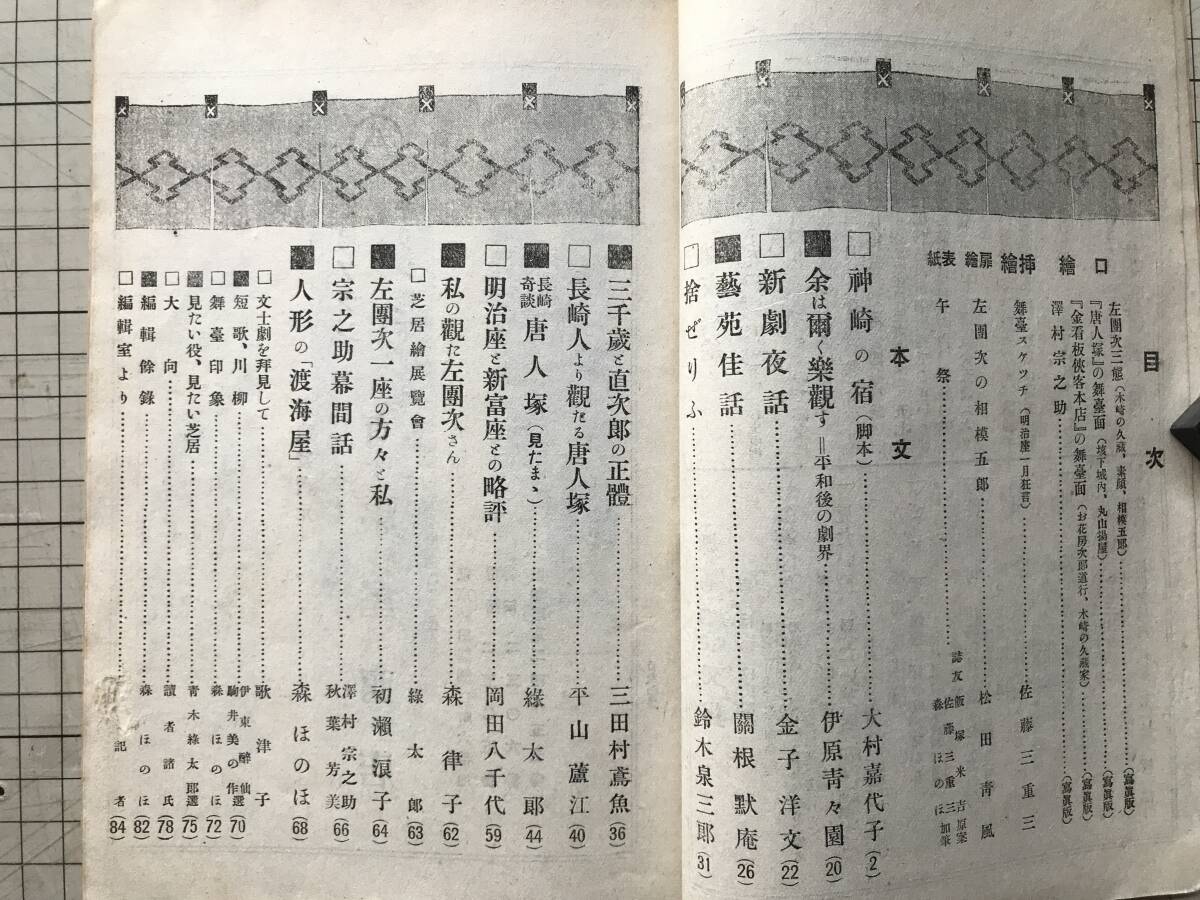 目次
口繪
左團次三態(木崎の久藏、素顏、相模五郎)………(寫眞版)
『唐人塚』の舞臺面(城下城內、丸山揚屋)………(寫眞版)
『金看板俠客本店』の舞臺面(お花房次郎道行、木崎の久藏家)………(寫眞版)
澤村宗之助………(寫眞版)
挿繪 舞臺スケッチ(明治座一月狂言)………佐藤三重三
扉繪 左團次の相模五郎………松田青風
表紙 午祭………誌友飯塚米吉原案 佐藤三重三 森ほのほ加筆
本文
□神崎の宿(脚本)………大村嘉代子(2)
■余は爾く樂觀す=平和後の劇界 伊原青々園(20)
□新劇夜話………金子洋文(22)
■藝苑佳話………關根默庵(26)
□捨ぜりふ………鈴木泉三郎(31)
■三千歲と直次郎の正體………三田村鳶魚(36)
□長崎人より觀たる唐人塚………平山蘆江(40)
■長崎奇談 唐人塚(見たまゝ)………綠太郎(44)
□明治座と新富座との略評………岡田八千代(59)
■私の觀た左團次さん………森律子(62)
□芝居繪展覽會………綠太郎(63)
■左團次一座の方々と私………初瀨浪子(64)
□宗之助幕間話………澤村宗之助 秋葉芳美(66)
■人形の「渡海屋」………森ほのほ(68)
□文士劇を拜見して………歌津子
■短歌、川柳………伊東醉仙 駒井美の作選(70)
□舞臺印象………森ほのほ(72)
■見たい役、見たい芝居………青木綠太郎選(75)
□大向………讀者諸氏(78)
■編輯餘錄………森ほのほ(82)
□編輯室より………記者(84)